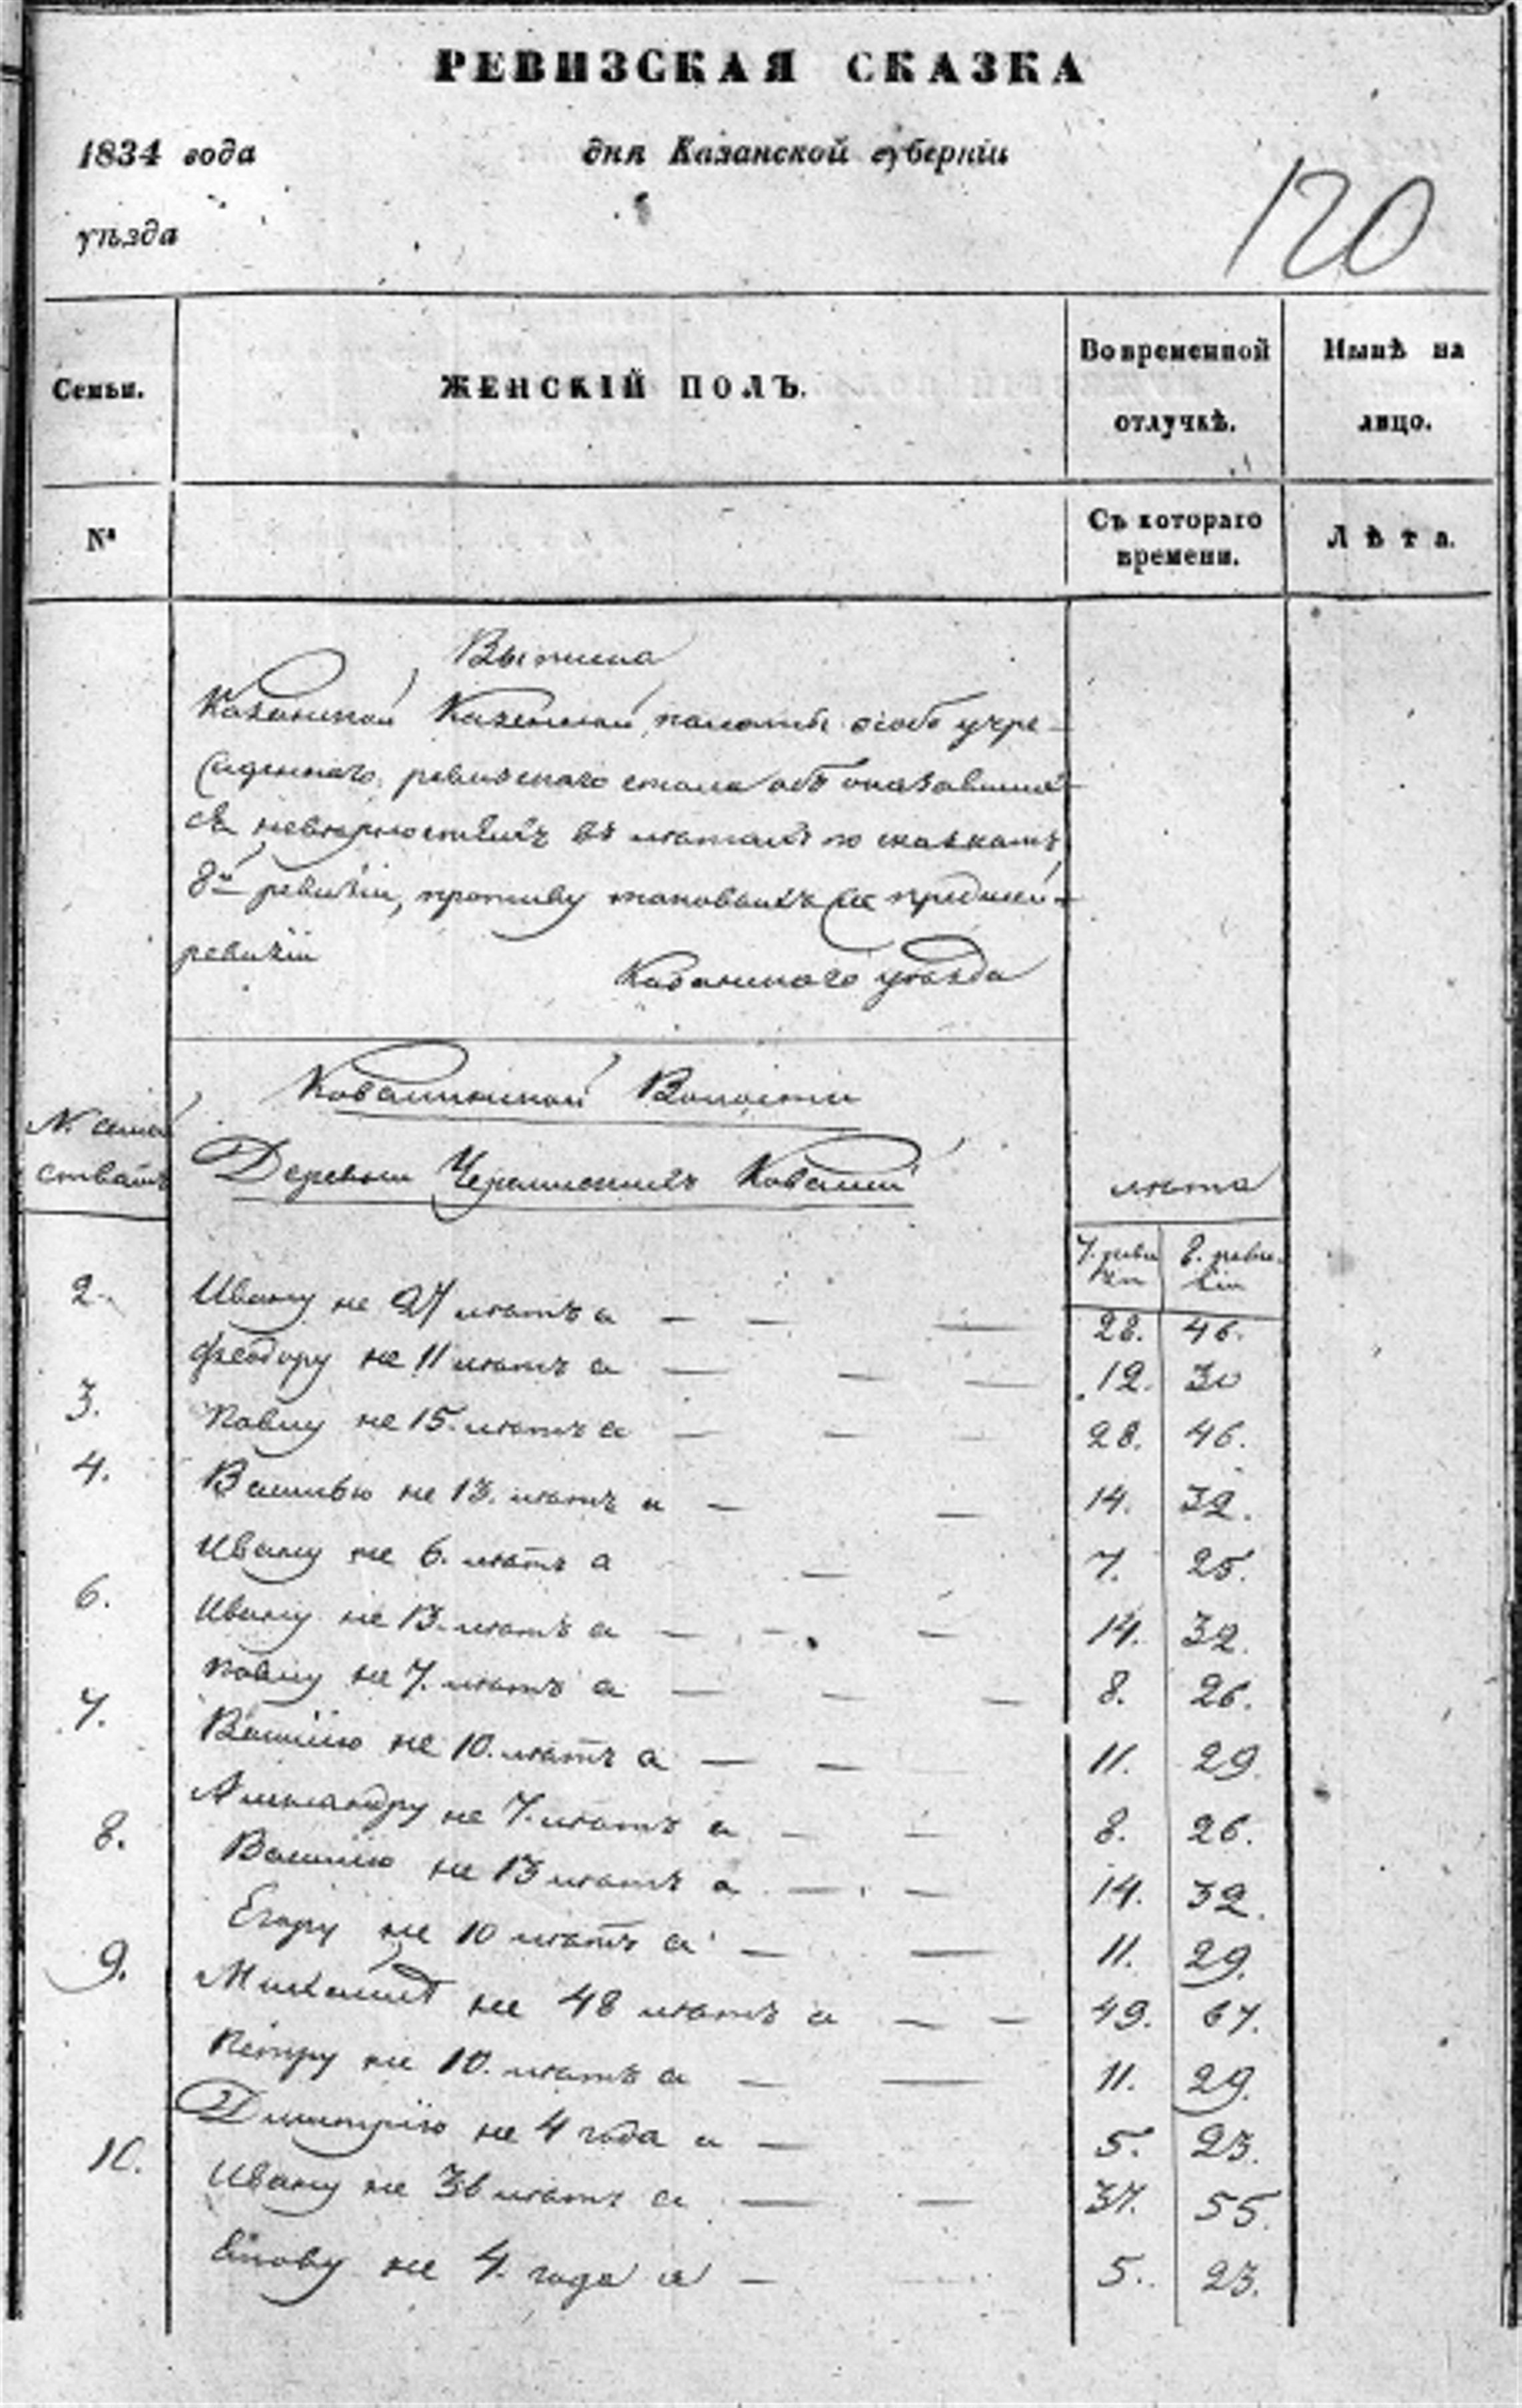 РЕВИЗСКАЯ СКАЗКА
1834 года дня Казанской губерніи
уѣзда
120
Семьи. ЖЕНСКІЙ ПОЛЪ. Во временной отлучкѣ. Нынѣ на лицо.
№ Съ котораго времени. Лѣта.
Выписка
Казанской Казенной палаты особо учре-
жденнаго ревизскаго стола объ оказавших
ся невѣрностяхъ въ лѣтахъ по сказкамъ
8й ревизіи, противу таковыхъ же прежней
ревизіи
Казанскаго уѣзда
Ковалинской Волости
№ семей
ствамъ
Деревни Черемискихъ Ковалей
лѣта
7. реви зіи 8. реви- зіи
2. Ивану не 27 лѣтъ а — — — 28. 46.
Феодору не 11 лѣтъ а — — — 12. 30
3. Павлу не 15. лѣтъ а — — — 28. 46.
4. Василью не 13. лѣтъ а — — 14. 32.
Ивану не 6. лѣтъ а — 7. 25.
6. Ивану не 13. лѣтъ а — — — 14. 32.
Павлу не 7. лѣтъ а — — — 8. 26.
7. Василію не 10. лѣтъ а — — 11. 29.
Александру не 7. лѣтъ а — — 8. 26.
8. Василію не 13 лѣтъ а — — 14. 32.
Егору не 10 лѣтъ а — — 11. 29.
9. Михайлѣ не 48 лѣтъ а — — 49. 67.
Петру не 10. лѣтъ а — — 11. 29.
Димитрію не 4 года а — 5. 23.
10. Ивану не 36 лѣтъ а — — 37. 55.
не 4. года а — 5. 23.